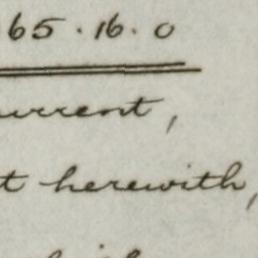 65.16.0
urrent,
t herewith,